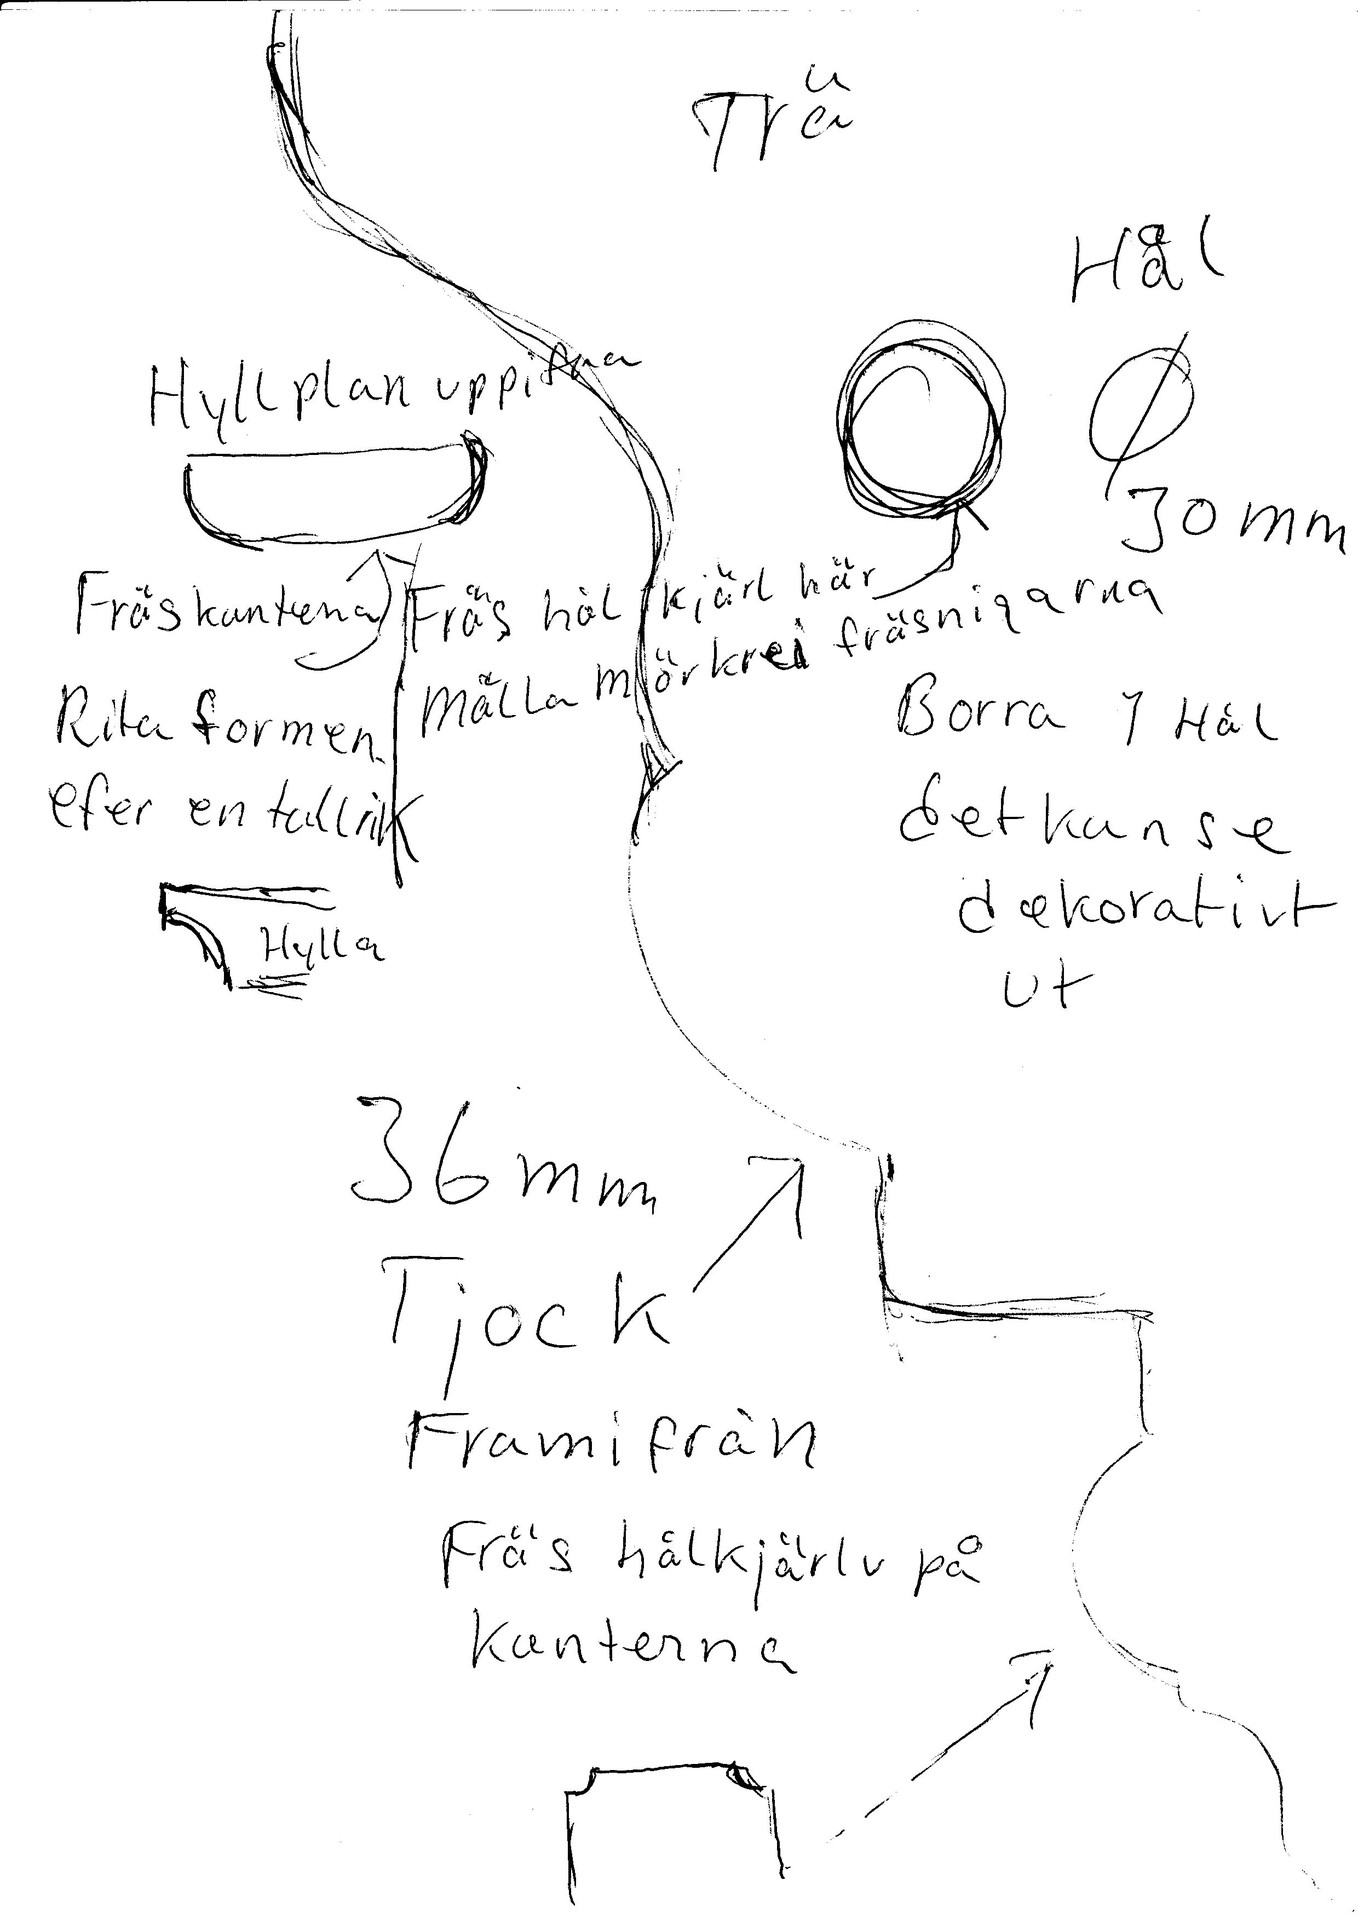 Trä
Hål
Hyllplan uppifra
30 mm
Fräs kanterna
Fräs hål kjärl här
Målla mörkre i fräsniqarna
Rita formen
efer en tallrik
Borra 1 Hål
det kan se
dekorativt
ut
Hylla
36 mm
Tjock
Framifrån
Fräs hålkjärlv på
kanterna